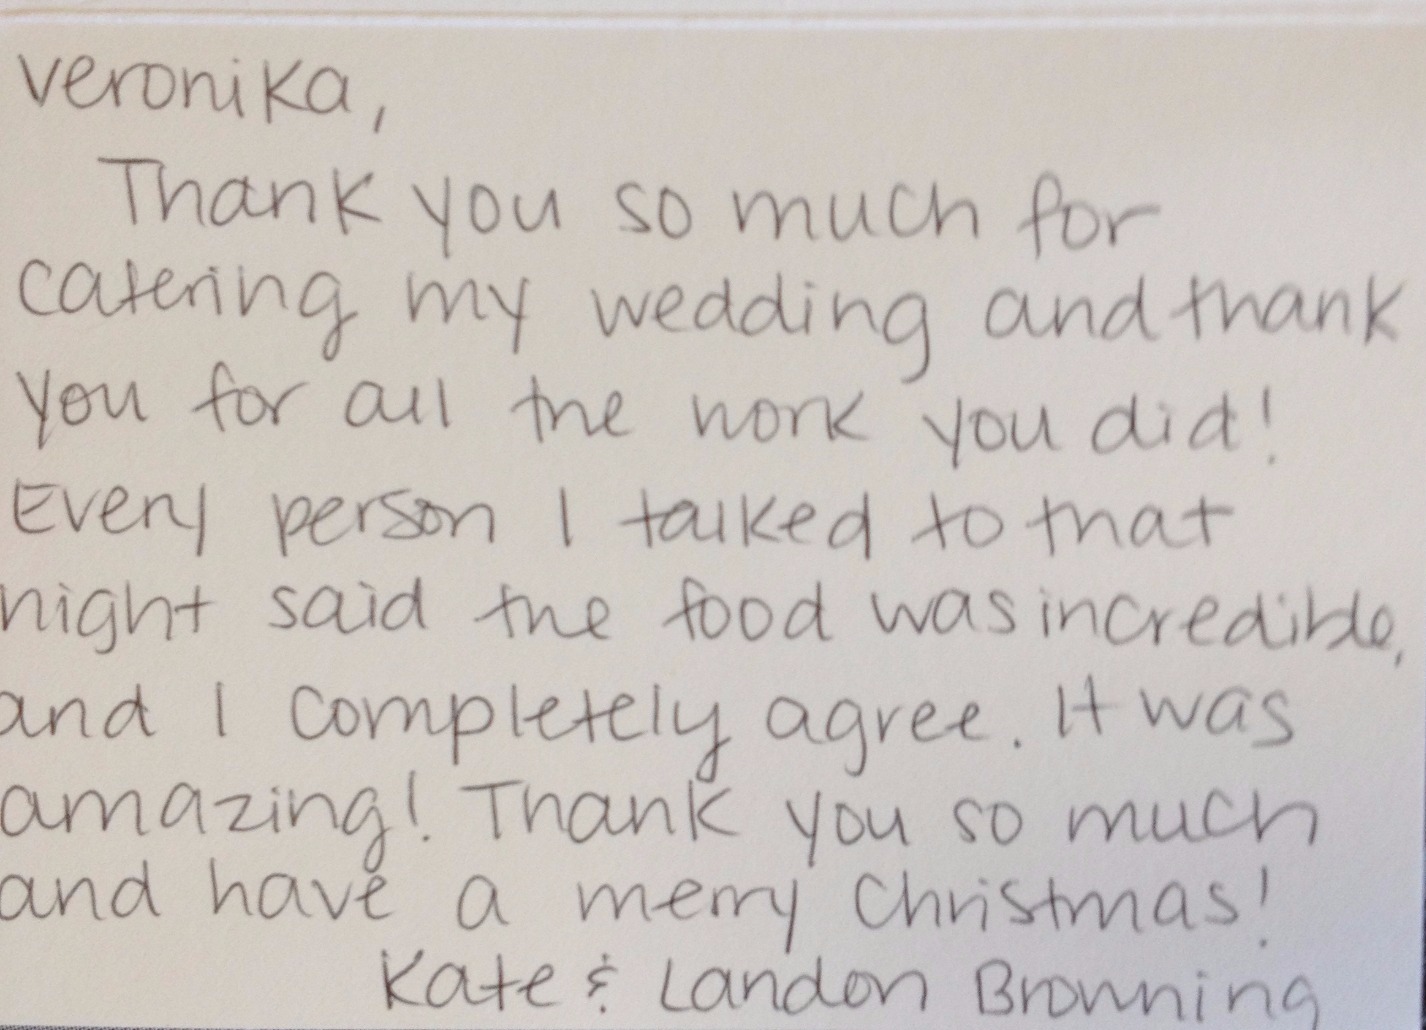 Veronika,
Thank you so much for
catering my wedding and thank
you for all the work you did!
Every person I talked to that
night said the food was incredible,
and I completely agree. It was
amazing! Thank you so much
and have a merry Christmas!
Kate & Landon Browning